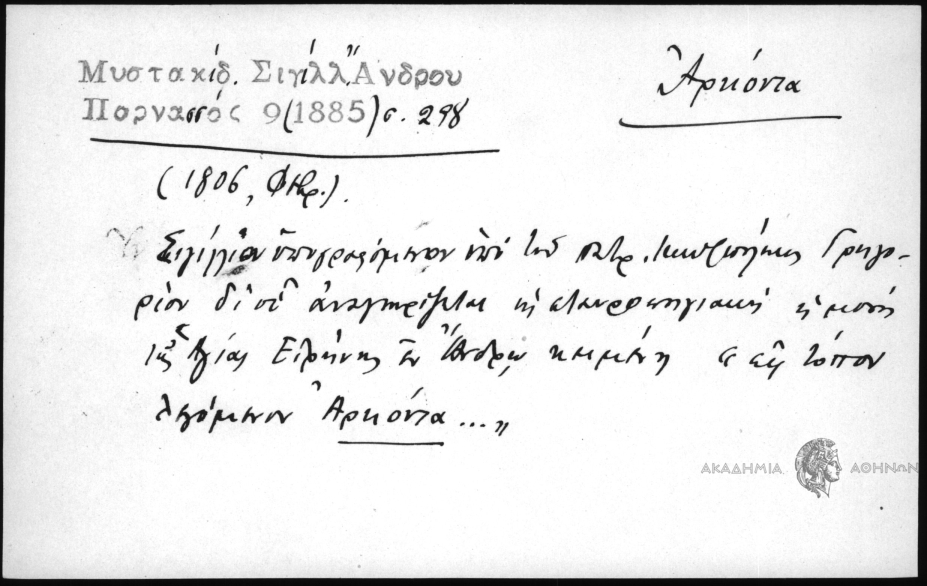 Μυστακίδ. Σιγίλλ. Ἄνδρου
Παρνασσός 9(1885) σ. 298
Ἀρκόντα
(1806, Φεβρ.).
Σιγίλλιον ὑπογραφόμενον ὑπὸ τοῦ πατρ. Κων/πόλεως Γρηγο-
ρίου δι' οὗ ἀναγνωρίζεται ὡς σταυροπηγιακὴ ἡ μονὴ
τῆς Ἁγίας Εἰρήνης ἐν Ἄνδρῳ κειμένη " εἰς τόπον
λεγόμενον Ἀρκόντα ... "
ΑΚΑΔΗΜΙΑ ΑΘΗΝΩΝ